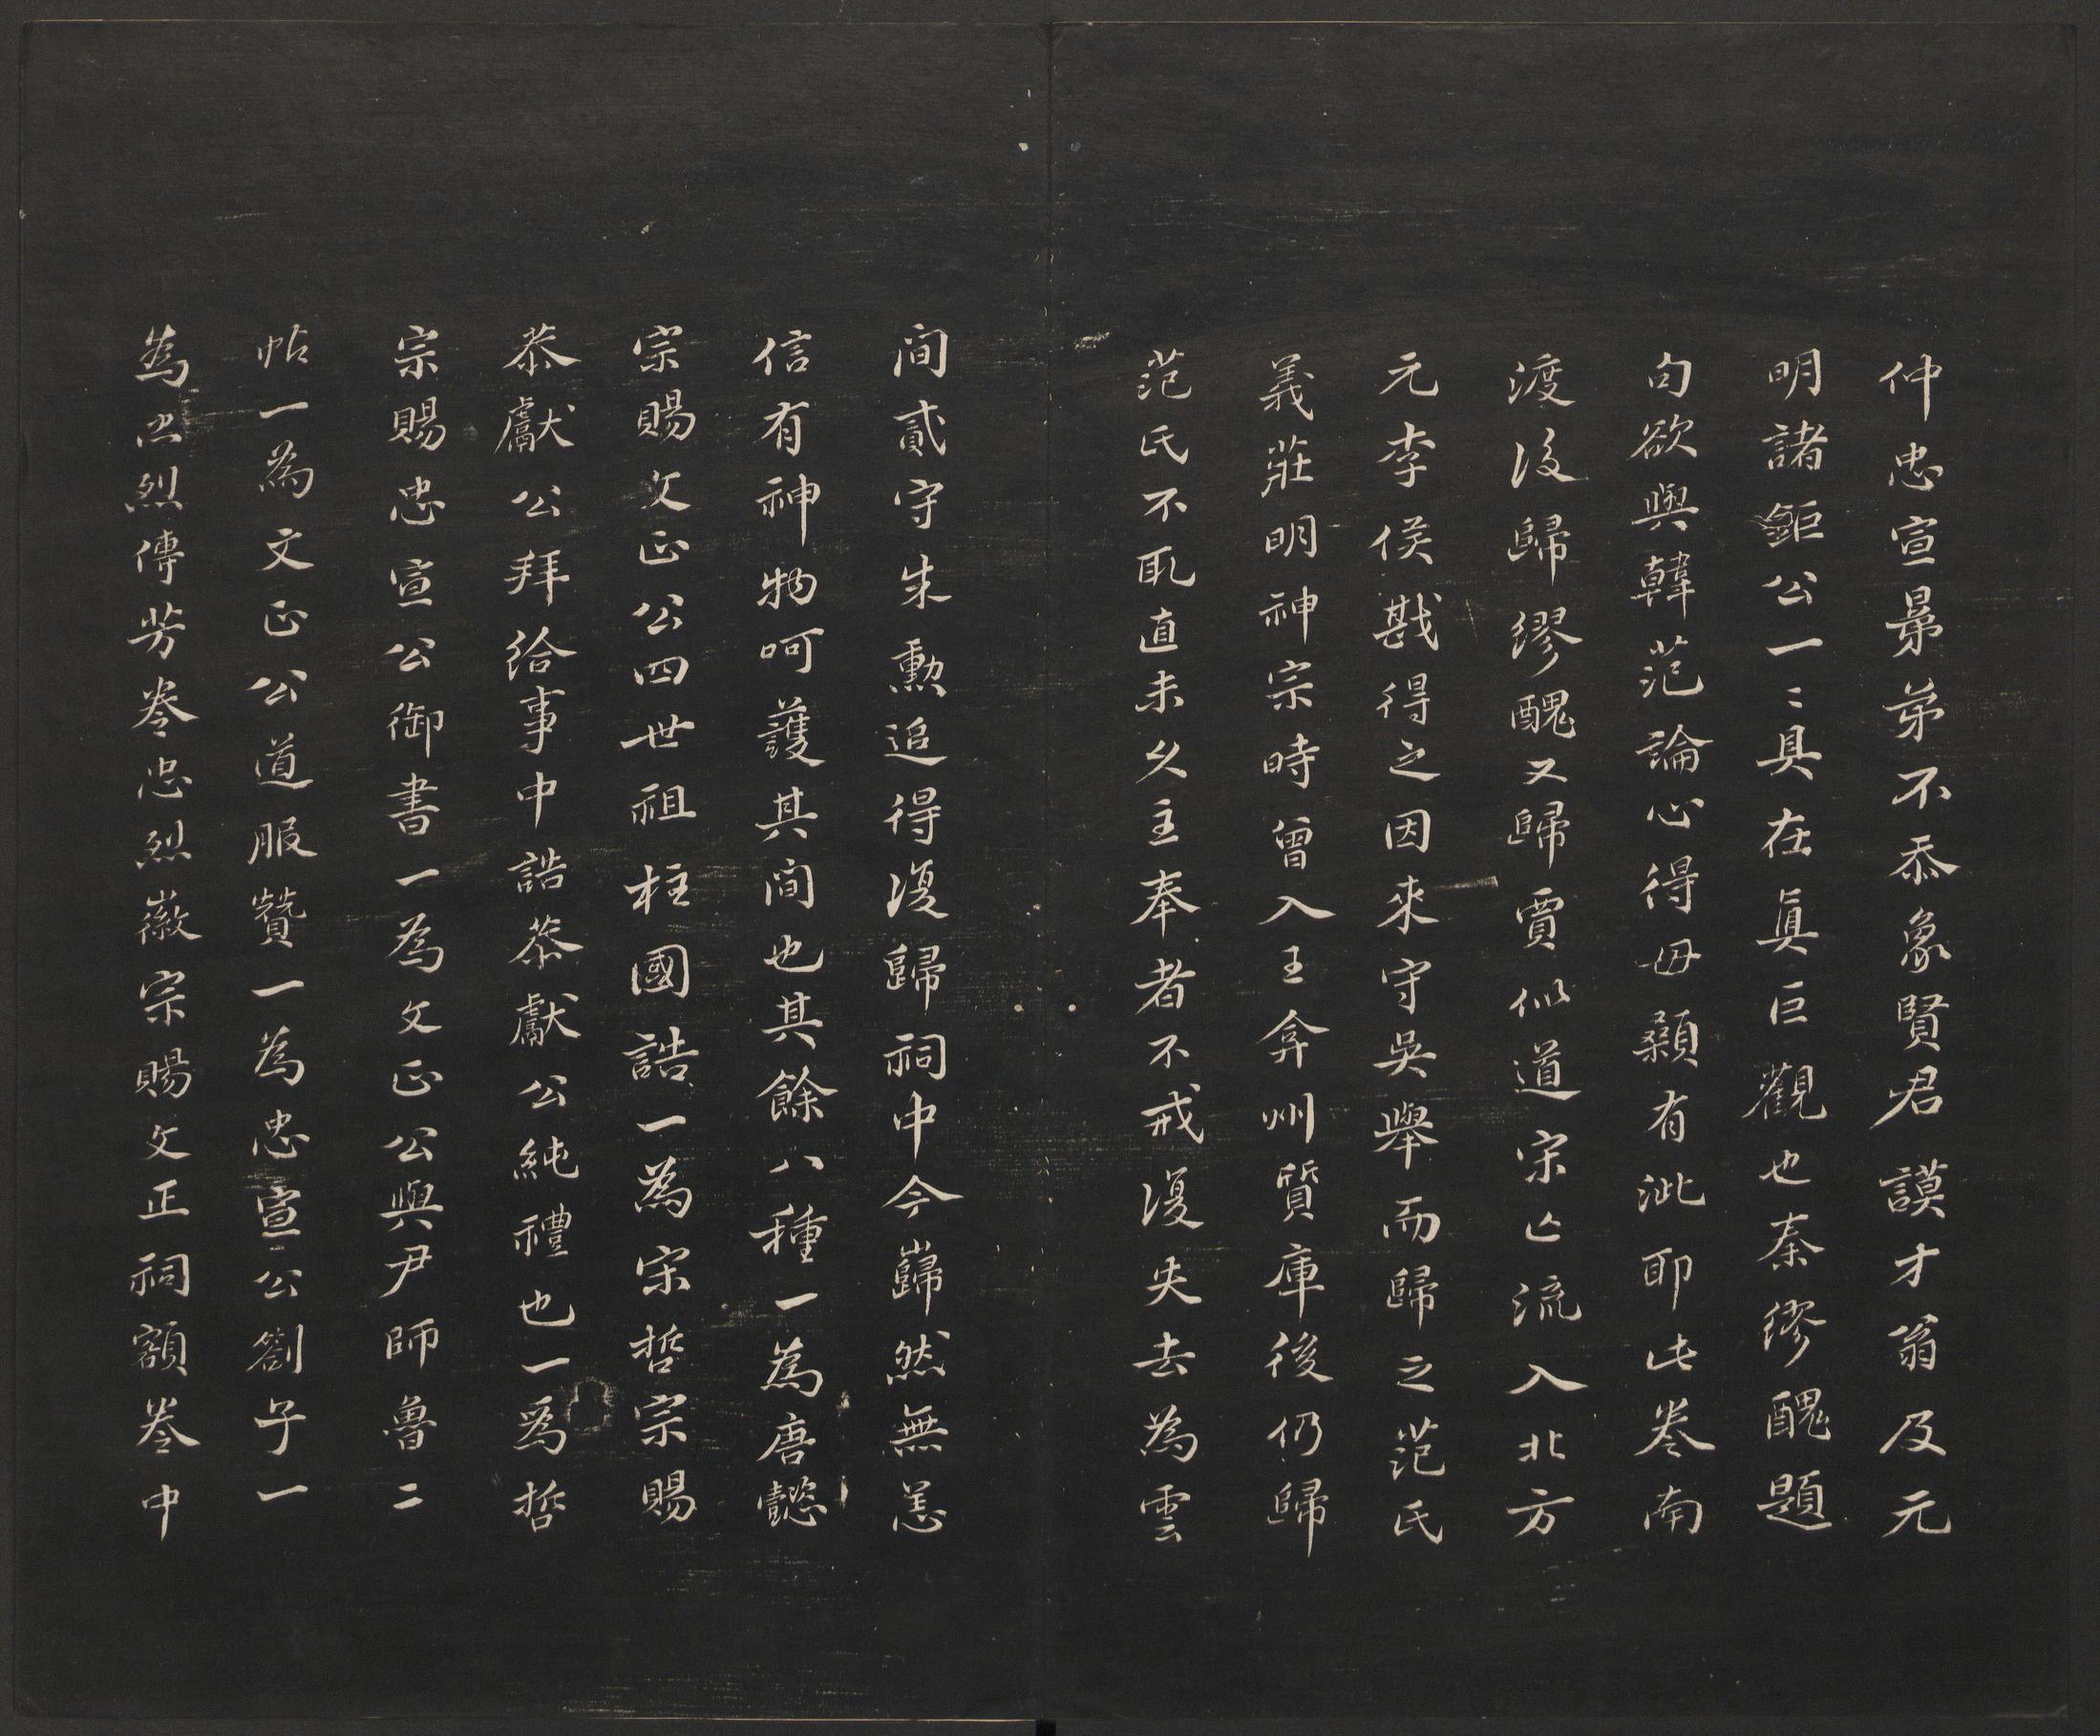 仲忠宣晜弟不忝象賢君謨才翁及元
明諸鉅公一〻具在真巨觀也秦繆醜題
句欲與韓范論心得毋顙有泚耶此卷南
渡後歸繆醜又歸賈似道宋亡流入北方
元李侯戡得之因來守吳舉而歸之范氏
義莊明神宗時曾入王弇州質庫後仍歸
范氏不取直未久主奉者不戒復失去為雲
間貳守朱勳追得復歸祠中今巋然無恙
信有神物呵護其間也其餘八種一為唐懿
宗賜文正公四世祖柱國誥一為宋哲宗賜
恭獻公拜給事中誥恭獻公純禮也一為哲
宗賜忠宣公御書一為文正公與尹師魯二
帖一為文正公道服贊一為忠宣公劄子一
為忠烈傳芳卷忠烈徽宗賜文正祠額卷中